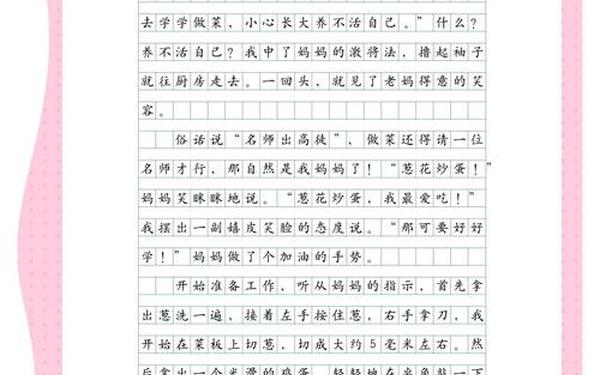 去学学做菜，小心长大养不活自己。”什么？
养不活自己？我中了妈妈的激将法，撸起袖子
就往厨房走去。一回头，就见了老妈得意的笑
容。
俗话说“名师出高徒”，做菜还得请一位
名师才行，那自然是我妈妈了！“葱花炒蛋！”
妈妈笑眯眯地说。“葱花炒蛋，我最爱吃！”
我摆出一副嬉皮笑脸的态度说。“那可要好好
学！”妈妈做了个加油的手势。
开始准备工作，听从妈妈的指示，首先拿
出葱洗一遍，接着左手按住葱，右手拿刀，我
开始在菜板上切葱，切成大约5毫米左右。然
后拿出一个光滑的鸡蛋，轻轻地在桌角敲一下